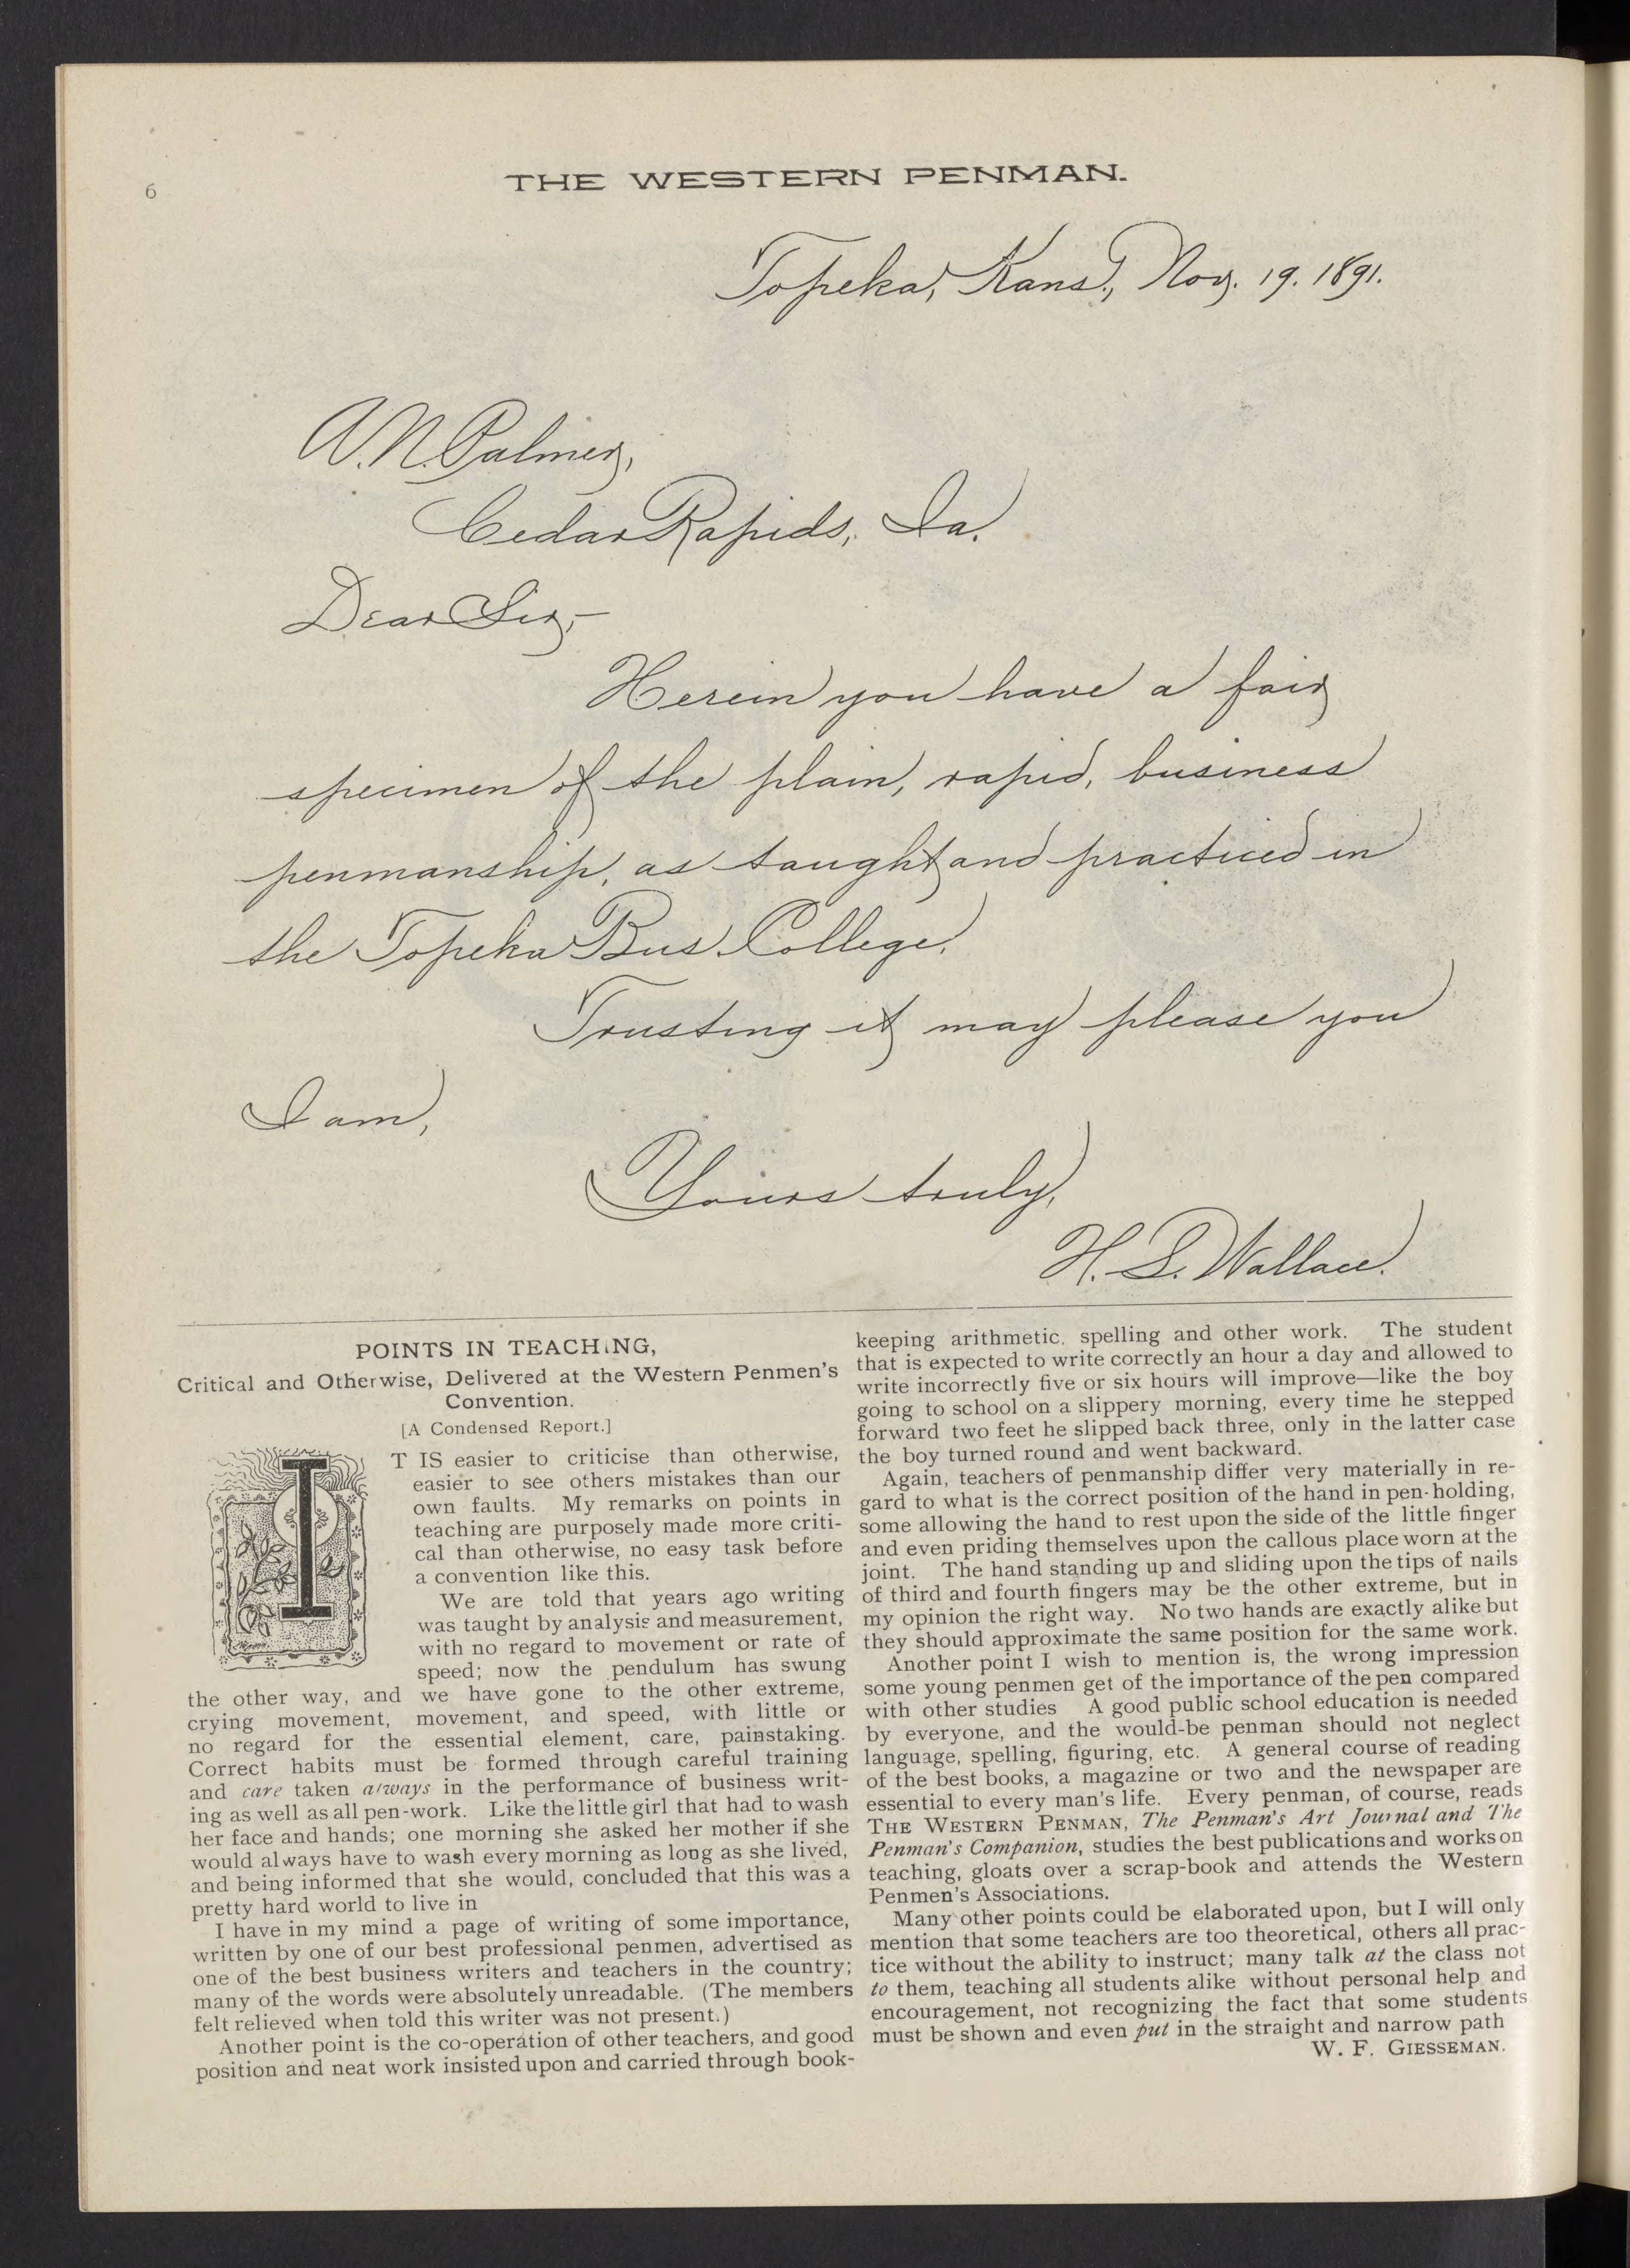 6
THE WESTERN PENMAN.
Topeka, Kans., Nov. 19. 1891.
A. N. Palmer,
Cedar Rapids, Ia.
Dear Sir,—
Herein you have a fair
specimen of the plain, rapid, business
penmanship, as taught and practiced in
the Topeka Bus. College.
Trusting it may please you
I am,
Yours truly,
H. S. Wallace.
POINTS IN TEACHING,
Critical and Otherwise, Delivered at the Western Penmen's
Convention.
[A Condensed Report.]
IT IS easier to criticise than otherwise,
easier to see others mistakes than our
own faults. My remarks on points in
teaching are purposely made more criti-
cal than otherwise, no easy task before
a convention like this.
We are told that years ago writing
was taught by analysis and measurement,
with no regard to movement or rate of
speed; now the pendulum has swung
the other way, and we have gone to the other extreme,
crying movement, movement, and speed, with little or
no regard for the essential element, care, painstaking.
Correct habits must be formed through careful training
and care taken always in the performance of business writ-
ing as well as all pen-work. Like the little girl that had to wash
her face and hands; one morning she asked her mother if she
would always have to wash every morning as long as she lived,
and being informed that she would, concluded that this was a
pretty hard world to live in
I have in my mind a page of writing of some importance,
written by one of our best professional penmen, advertised as
one of the best business writers and teachers in the country;
many of the words were absolutely unreadable. (The members
felt relieved when told this writer was not present.)
Another point is the co-operation of other teachers, and good
position and neat work insisted upon and carried through book-
keeping arithmetic, spelling and other work. The student
that is expected to write correctly an hour a day and allowed to
write incorrectly five or six hours will improve—like the boy
going to school on a slippery morning, every time he stepped
forward two feet he slipped back three, only in the latter case
the boy turned round and went backward.
Again, teachers of penmanship differ very materially in re-
gard to what is the correct position of the hand in pen-holding,
some allowing the hand to rest upon the side of the little finger
and even priding themselves upon the callous place worn at the
joint. The hand standing up and sliding upon the tips of nails
of third and fourth fingers may be the other extreme, but in
my opinion the right way. No two hands are exactly alike but
they should approximate the same position for the same work.
Another point I wish to mention is, the wrong impression
some young penmen get of the importance of the pen compared
with other studies A good public school education is needed
by everyone, and the would-be penman should not neglect
language, spelling, figuring, etc. A general course of reading
of the best books, a magazine or two and the newspaper are
essential to every man's life. Every penman, of course, reads
THE WESTERN PENMAN, The Penman's Art Journal and The
Penman's Companion, studies the best publications and works on
teaching, gloats over a scrap-book and attends the Western
Penmen's Associations.
Many other points could be elaborated upon, but I will only
mention that some teachers are too theoretical, others all prac-
tice without the ability to instruct; many talk at the class not
to them, teaching all students alike without personal help and
encouragement, not recognizing the fact that some students
must be shown and even put in the straight and narrow path
W. F. GIESSEMAN.